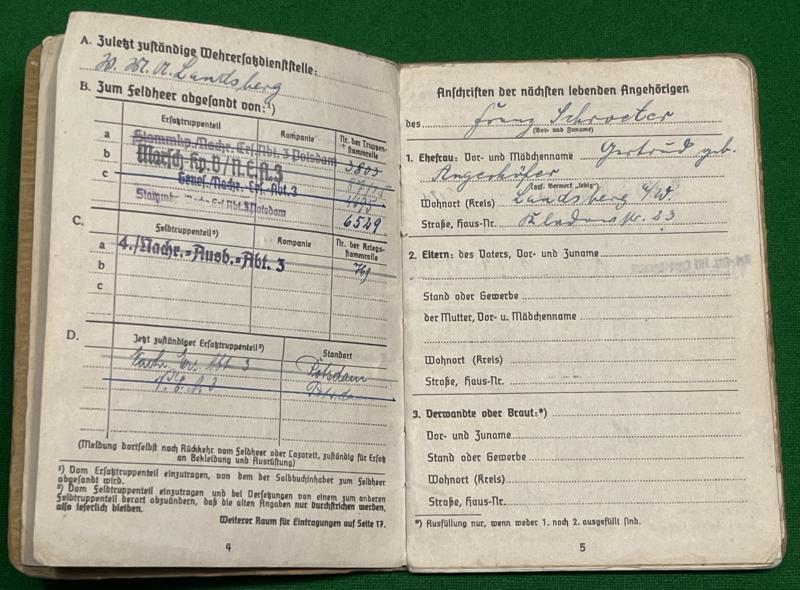 A. Zuletzt zuständige Wehrersatzdienststelle:
W. M. A. Landsberg
B. Zum Feldheer abgesandt von:¹)
Ersatztruppenteil Kompanie Nr. der Truppenstammrolle
a Stammkp./Nachr. Ers. Abt. 3 Potsdam 3803
b Marsch-Kp. D/N.E.A.3
c Genes./Nachr.-Ers.-Abt. 3
Stammkp. Abt. 3 Potsdam 6529
C. Feldtruppenteil²) Kompanie Nr. der Kriegsstammrolle
a 4./Nachr.-Ausb.-Abt. 3
b
c
D. Jetzt zuständiger Ersatztruppenteil²) Standort
Nachr. Ers. Abt. 3 Potsdam
N. E. A. 3 Potsdam
(Meldung dortselbst nach Rückkehr vom Feldheer oder Lazarett, zuständig für Ersatz
an Bekleidung und Ausrüstung)
¹) Vom Ersatztruppenteil einzutragen, von dem der Soldbuchinhaber zum Feldheer
abgesandt wird.
²) Vom Feldtruppenteil einzutragen und bei Versetzungen von einem zum anderen
Feldtruppenteil derart abzuändern, daß die alten Angaben nur durchstrichen werden,
also leserlich bleiben.
Weiterer Raum für Eintragungen auf Seite 17.
4
Anschriften der nächsten lebenden Angehörigen
des Franz Schroeter
(Vor- und Zuname)
1. Ehefrau: Vor- und Mädchenname Gertrud geb.
Angerhöfer
(ggf. Vermerk „ledig")
Wohnort (Kreis) Landsberg a/W.
Straße, Haus-Nr. 23
2. Eltern: des Vaters, Vor- und Zuname
Stand oder Gewerbe
der Mutter, Vor- u. Mädchenname
Wohnort (Kreis)
Straße, Haus-Nr.
3. Verwandte oder Braut:*)
Vor- und Zuname
Stand oder Gewerbe
Wohnort (Kreis)
Straße, Haus-Nr.
*) Ausfüllung nur, wenn weder 1. noch 2. ausgefüllt sind.
5